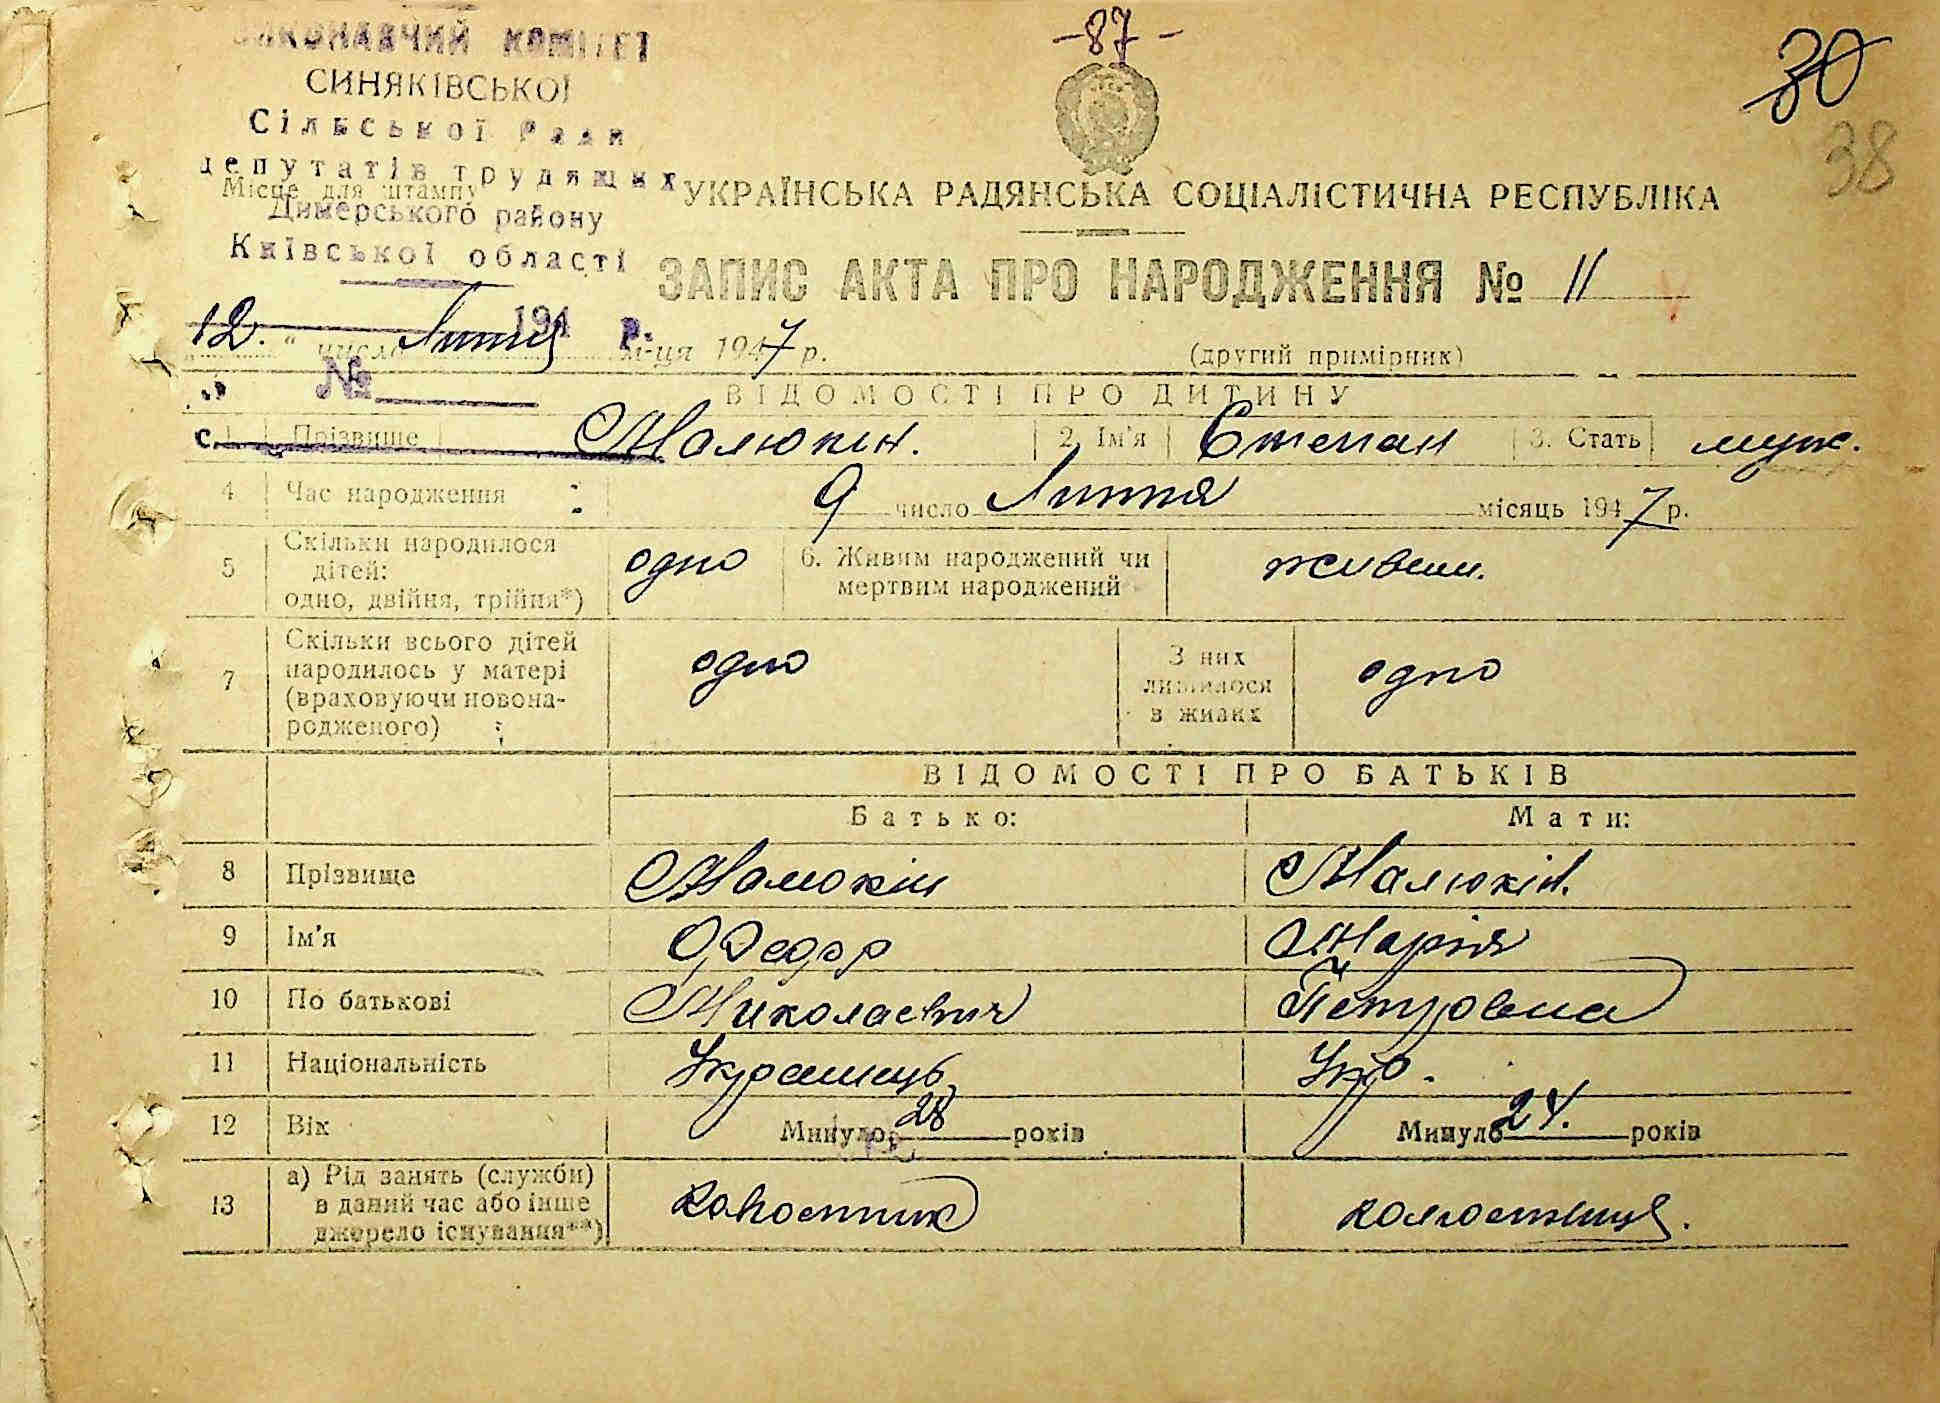 -87-
30
38
ВИКОНАВЧИЙ КОМІТЕТ
СИНЯКІВСЬКОЇ
Сільської Ради
депутатів трудящих
Місце для штампу
Димерського району
Київської області
194 р.
№
с.
УКРАЇНСЬКА РАДЯНСЬКА СОЦІАЛІСТИЧНА РЕСПУБЛІКА
ЗАПИС АКТА ПРО НАРОДЖЕННЯ № 11
12. " число Липня м-ця 1947 р.
(другий примірник)
ВІДОМОСТІ ПРО ДИТИНУ
1. Прізвище Малюкін. 2. Ім'я Степан 3. Стать муж.
4 Час народження 9 число Липня місяць 1947 р.
5 Скільки народилося дітей: одно, двійня, трійня*) одно 6. Живим народжений чи мертвим народжений живим.
7 Скільки всього дітей народилось у матері (враховуючи новонародженого) одно З них лишилося в живих одно
ВІДОМОСТІ ПРО БАТЬКІВ
Батько: Мати:
8 Прізвище Малюкін Малюкін.
9 Ім'я Федор Марія
10 По батькові Николаевич Петровна
11 Національність Украинець Укр.
12 Вік Минуло 28 років Минуло 24. років
13 а) Рід занять (служби) в даний час або інше джерело існування**) колгоспник колгоспниця.